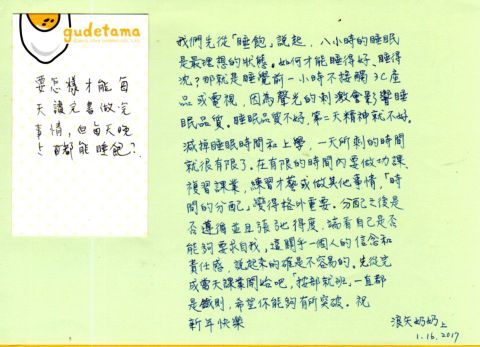 gudetama
要怎樣才能每
天讀完書做完
事情，但每天晚
上都能睡飽？
我們先從「睡飽」說起，八小時的睡眠
是最理想的狀態。如何才能睡得好、睡得
沈？那就是睡覺前一小時不接觸3C產
品或電視，因為聲光的刺激會影響睡
眠品質。睡眠品質不好，第二天精神就不好。
減掉睡眠時間和上學，一天所剩的時間
就很有限了。在有限的時間內要做功課、
複習課業，練習才藝或做其他事情，「時
間的分配」變得格外重要。分配之後是
否遵循並且張弛得度，端看自己是否
能夠要求自我，這關乎一個人的信念和
責任感，說起來的確是不容易的。先從完
成當天課業開始吧，「按部就班」一直都
是鐵則，希望你能夠有所突破。祝
新年快樂
浪矢奶奶上
1.16.2017